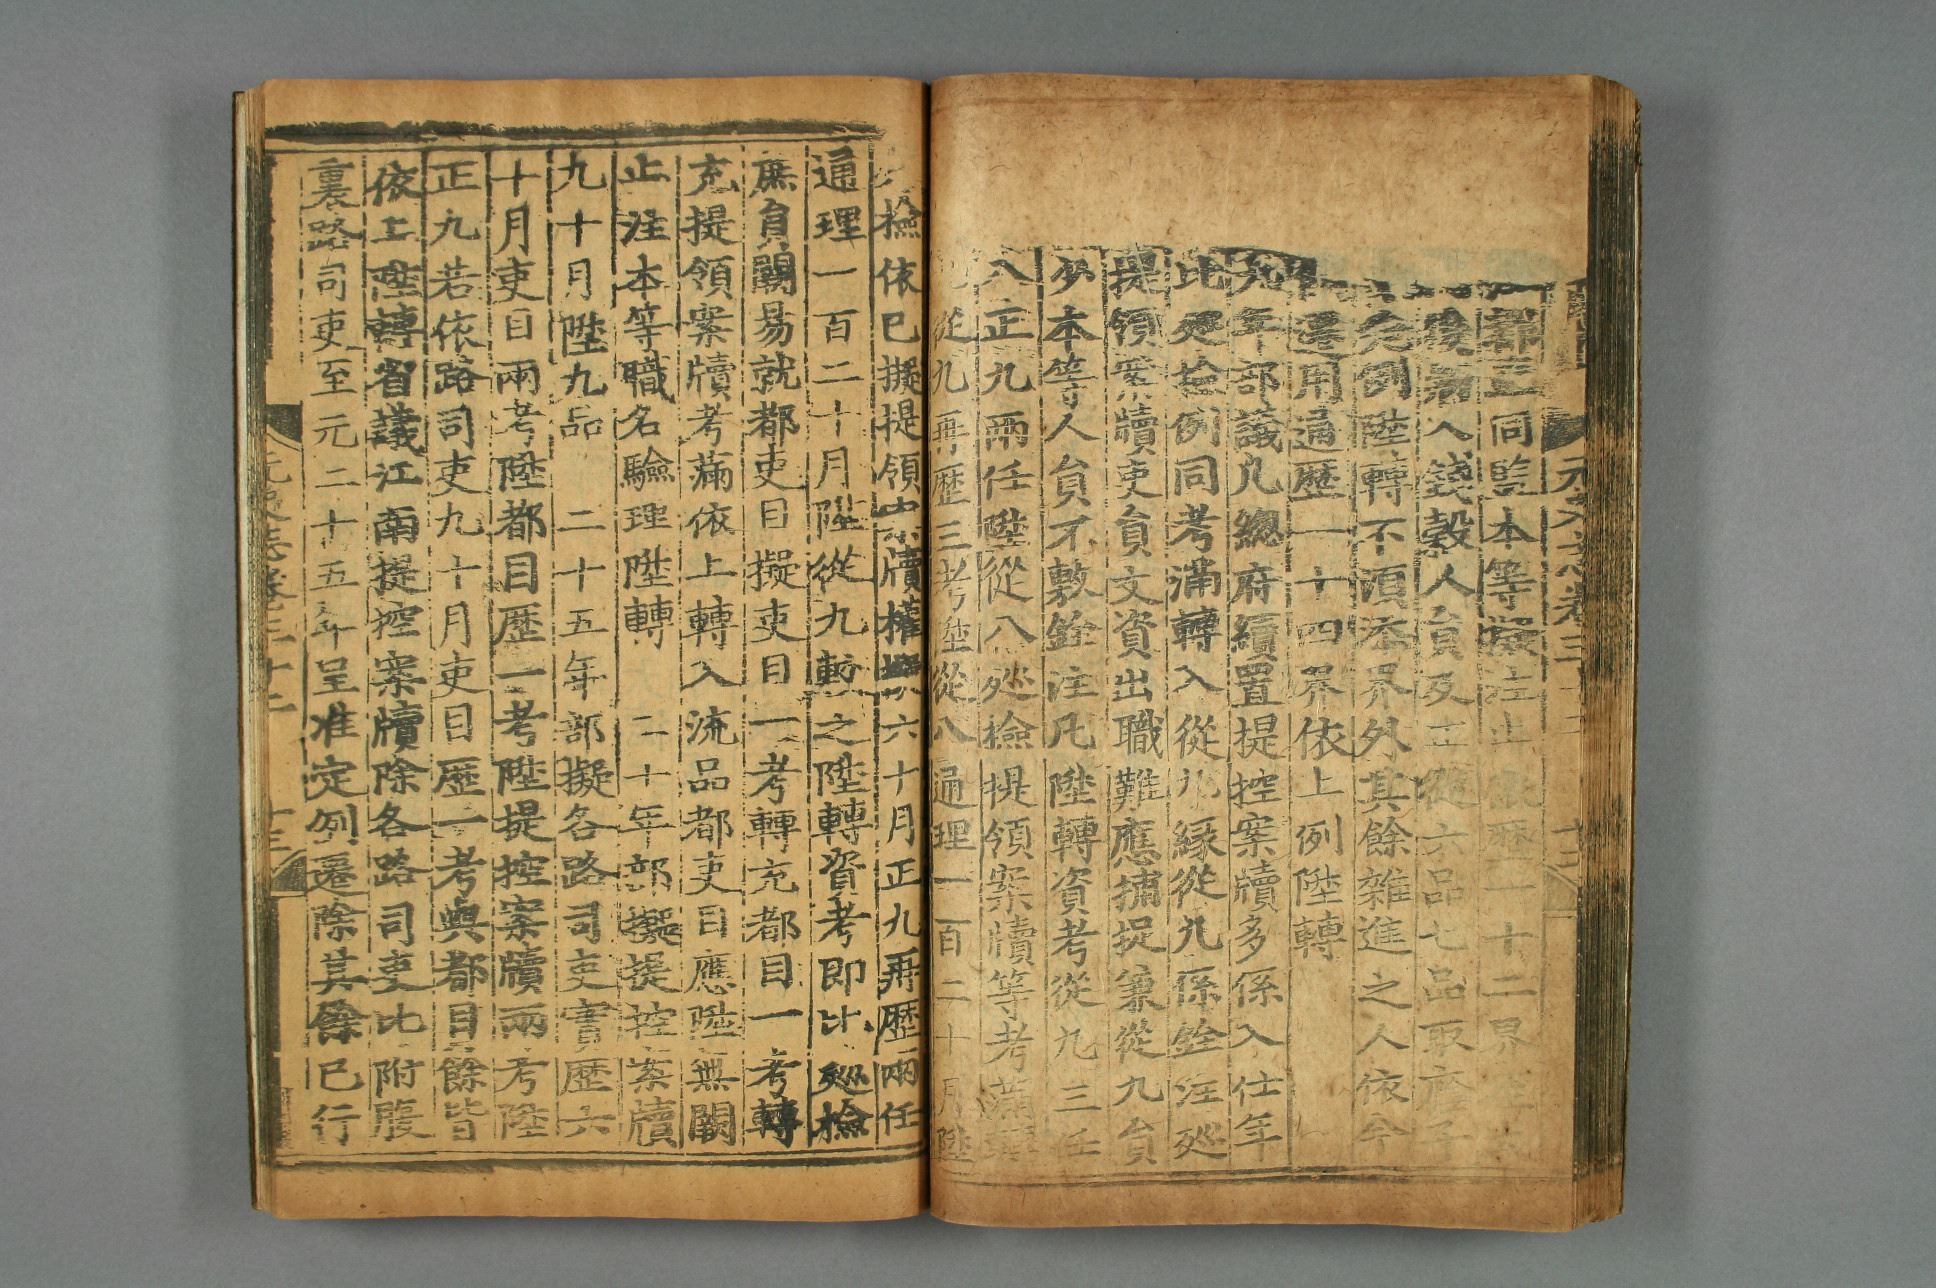 同監本等擬注止歷一十二界
錢穀人員及正從六品七品取廕子
例陞轉不須添界外其餘雜進之人依今
遷用通歷一十四界依上例陞轉
元年部議凡總府續置提控案牘多係入仕年
比巡檢例同考滿轉入從九緣從九係銓注巡
提領案牘吏員文資出職難應捕捉兼從九員
多本等人員不敷銓注凡陞轉資考從九三任
八正九兩任陞從八巡檢提領案牘等考滿轉
從九再歷三考陞從八通理一百二十月陞
檢依已擬提領案牘權擬六十月正九再歷兩任
通理一百二十月陞從九較之陞轉資考即比巡檢
庶員闕易就都吏目擬吏目一考轉充都目一考轉
充提領案牘考滿依上轉入流品都吏目應陞無闕
止注本等職名驗理陞轉 二十年部擬提控案牘
九十月陞九品 二十五年部擬各路司吏實歷六
十月吏目兩考陞都目歷一考陞提控案牘兩考陞
正九若依路司吏九十月吏目歷一考與都目餘皆
依上陞轉省議江南提控案牘除各路司吏比附腹
裏路司吏至元二十五年呈准定例遷除其餘已行
元史志卷三十二 十三